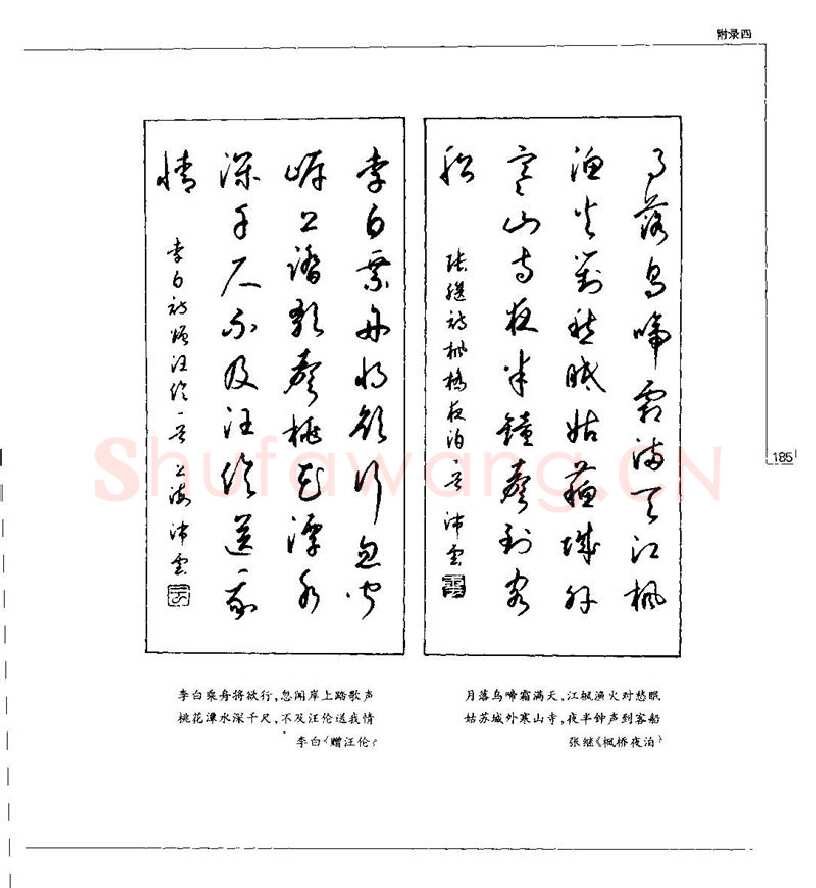 附录四
月落乌啼霜满天江枫
渔火对愁眠姑苏城外
寒山寺夜半钟声到客
船
张继诗枫桥夜泊一首 沛云
李白乘舟将欲行忽闻
岸上踏歌声桃花潭水
深千尺不及汪伦送我
情
李白诗赠汪伦一首 上海沛云
185
Shufawang.CN
月落乌啼霜满天。江枫渔火对愁眠
姑苏城外寒山寺。夜半钟声到客船
张继《枫桥夜泊》
李白乘舟将欲行,忽闻岸上踏歌声
桃花潭水深千尺,不及汪伦送我情
李白《赠汪伦》